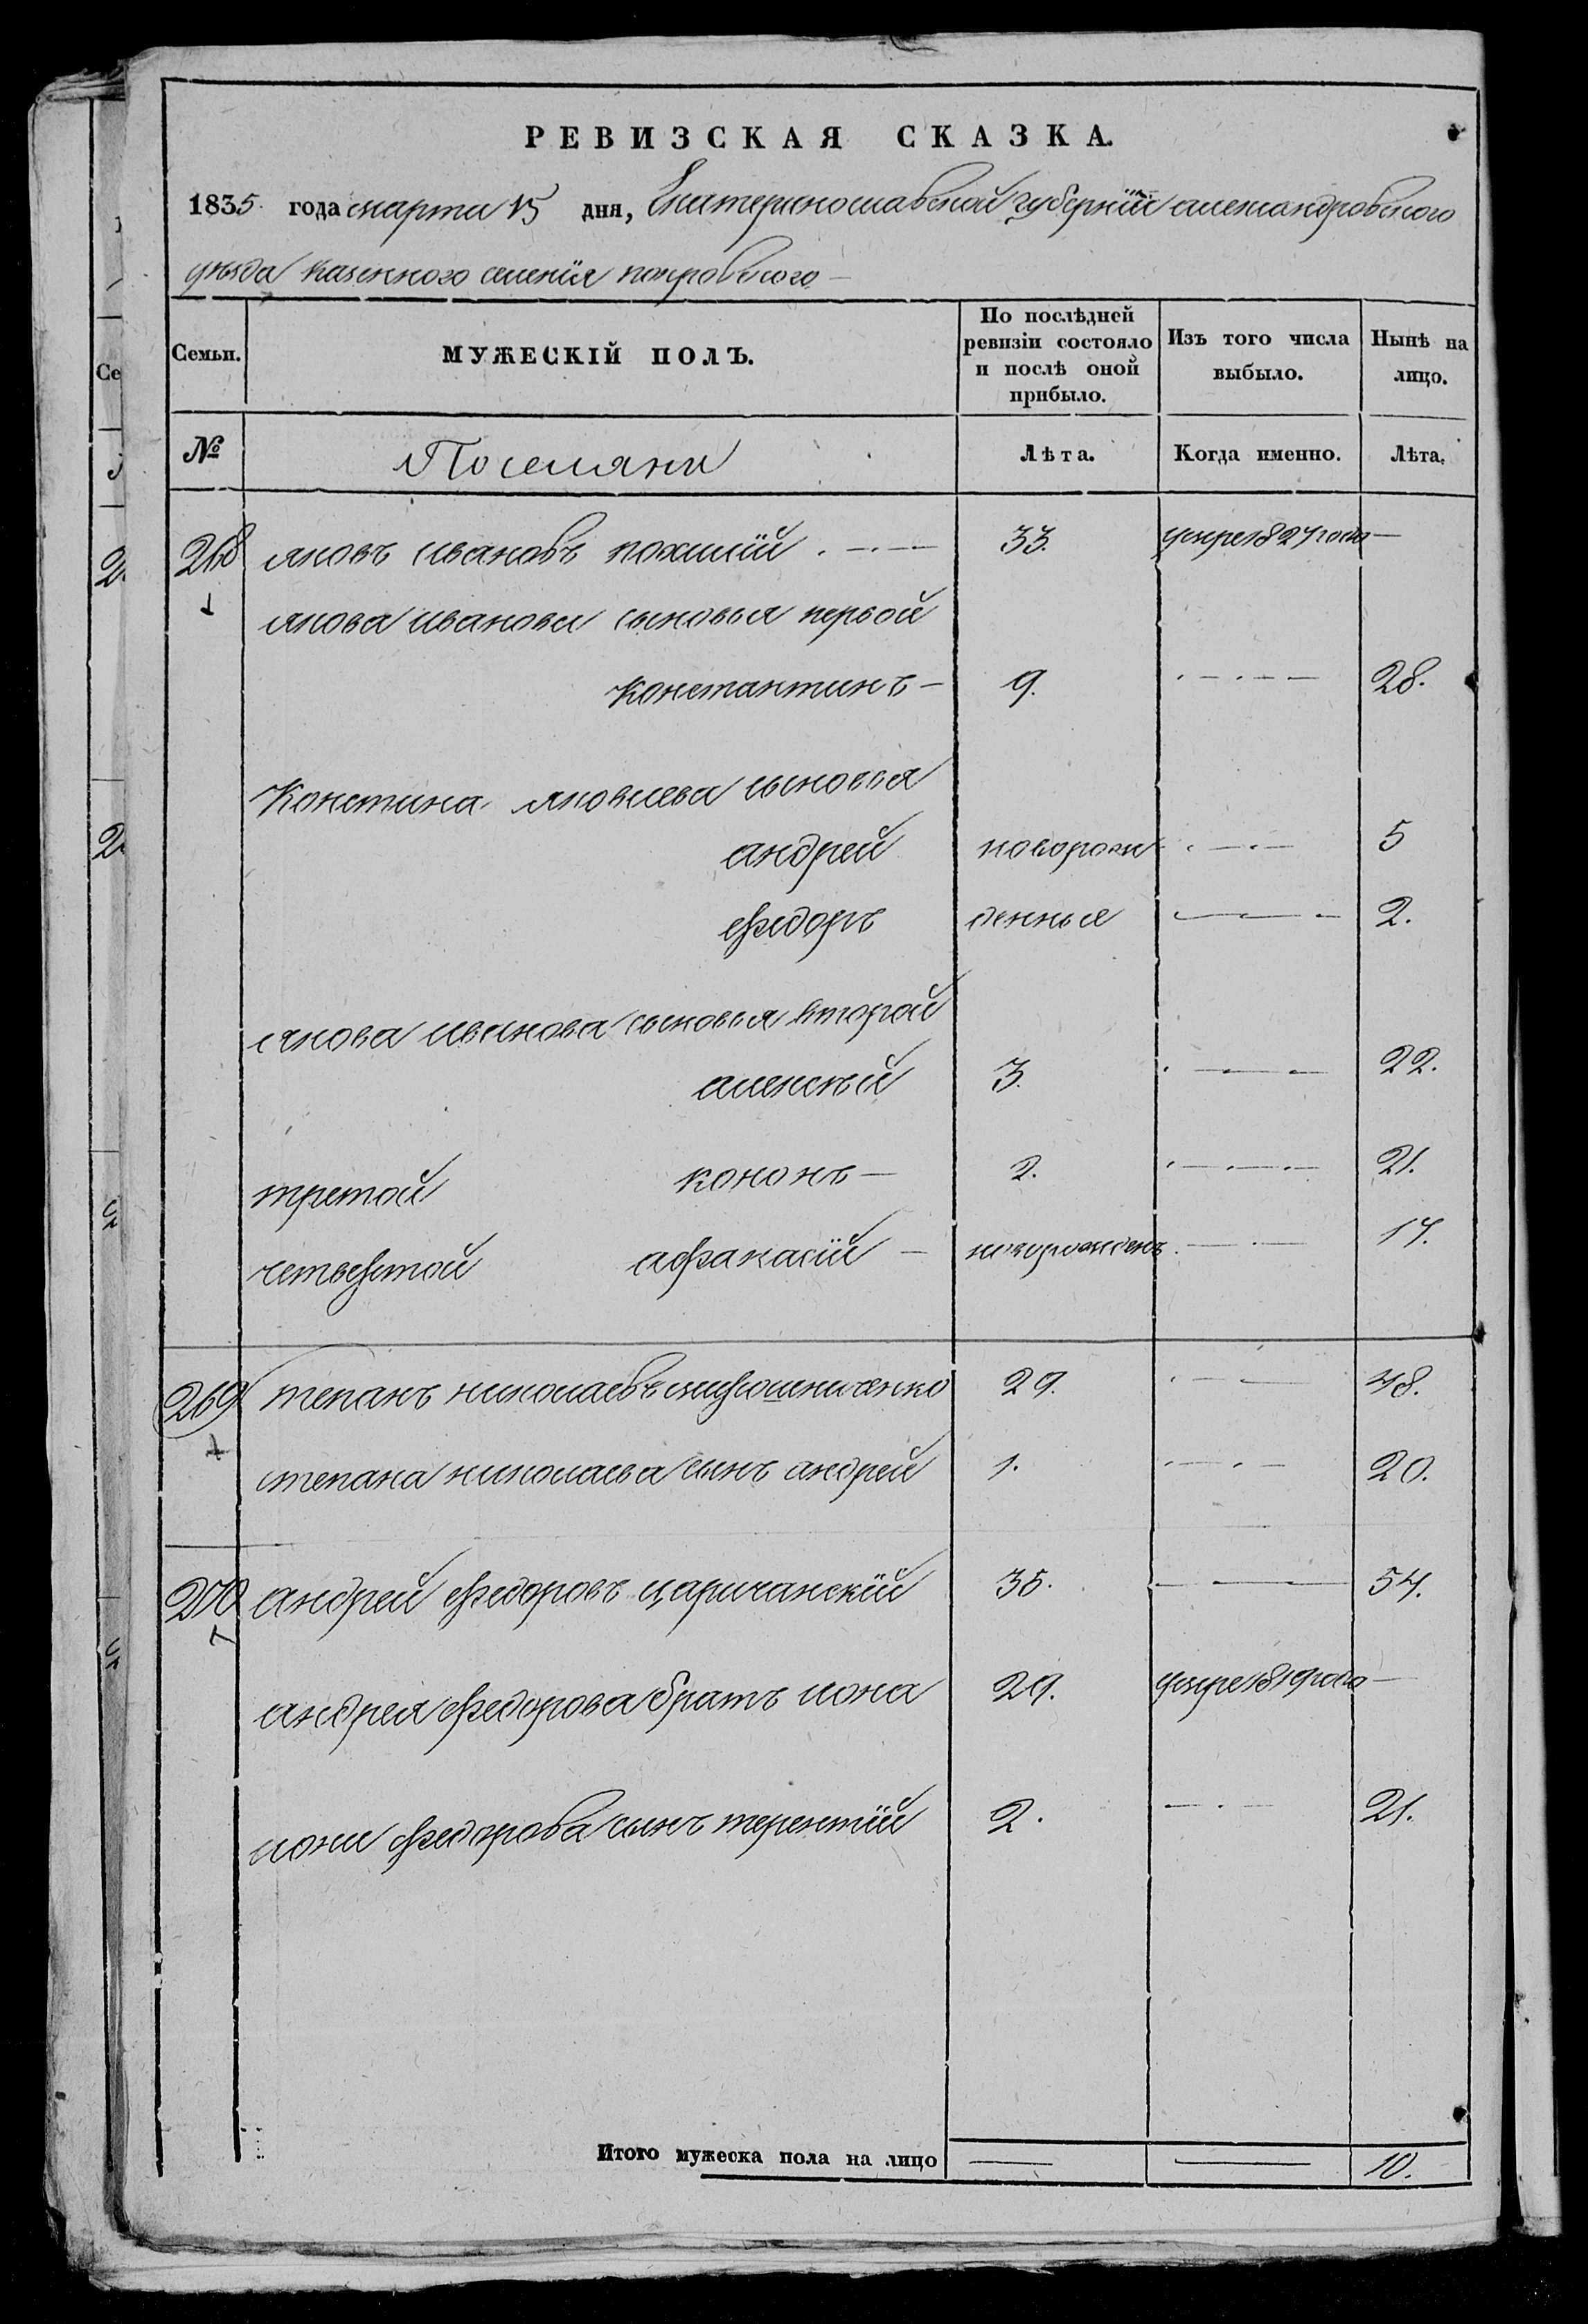 РЕВИЗСКАЯ СКАЗКА.
1835 года марта 15 дня, Екатеринославской губернїи александровского
уезда казенного селенїя покровского
Семьи. МУЖЕСКІЙ ПОЛЪ. По послѣдней ревизіи состояло и послѣ оной прибыло. Изъ того числа выбыло. Нынѣ на лицо.
№ Поселяни Лѣта. Когда именно. Лѣта.
268 яковъ ивановъ 33. умре 1827 года
якова иванова сыновья первой
константинъ 9. 28.
Констина яковлева сыновья
андрей новорож 5
федоръ денные 2.
якова иванова сыновья второй
алексѣй 3. 22.
третой кононъ 2. 21.
четвертой афанасїй новорожденъ 17.
269 тепанъ николаевъ мирошниченко 29. 48.
степана николаева сынъ андрей 1. 20.
270 андрей федоровъ царичанскїй 35. 54.
андрея федорова братъ иона 29. умре 1819 года
иони федорова сынъ терентїй 2. 21.
Итого мужеска пола на лицо 10.